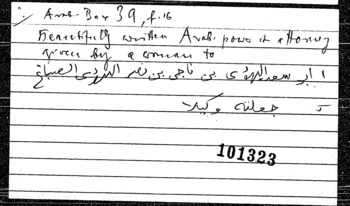 Arab. Box 39, f. 16
Beautifully written Arab. power of attorney
given by a woman to
ابو سعد اليهودى بن ناجى بن نصر اليهودى الصباغ
جعلته وكيلا
101323